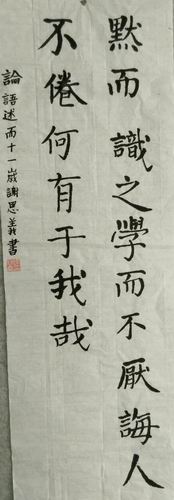 默而識之學而不厭誨人
不倦何有于我哉
論語述而十一歲謝思義書